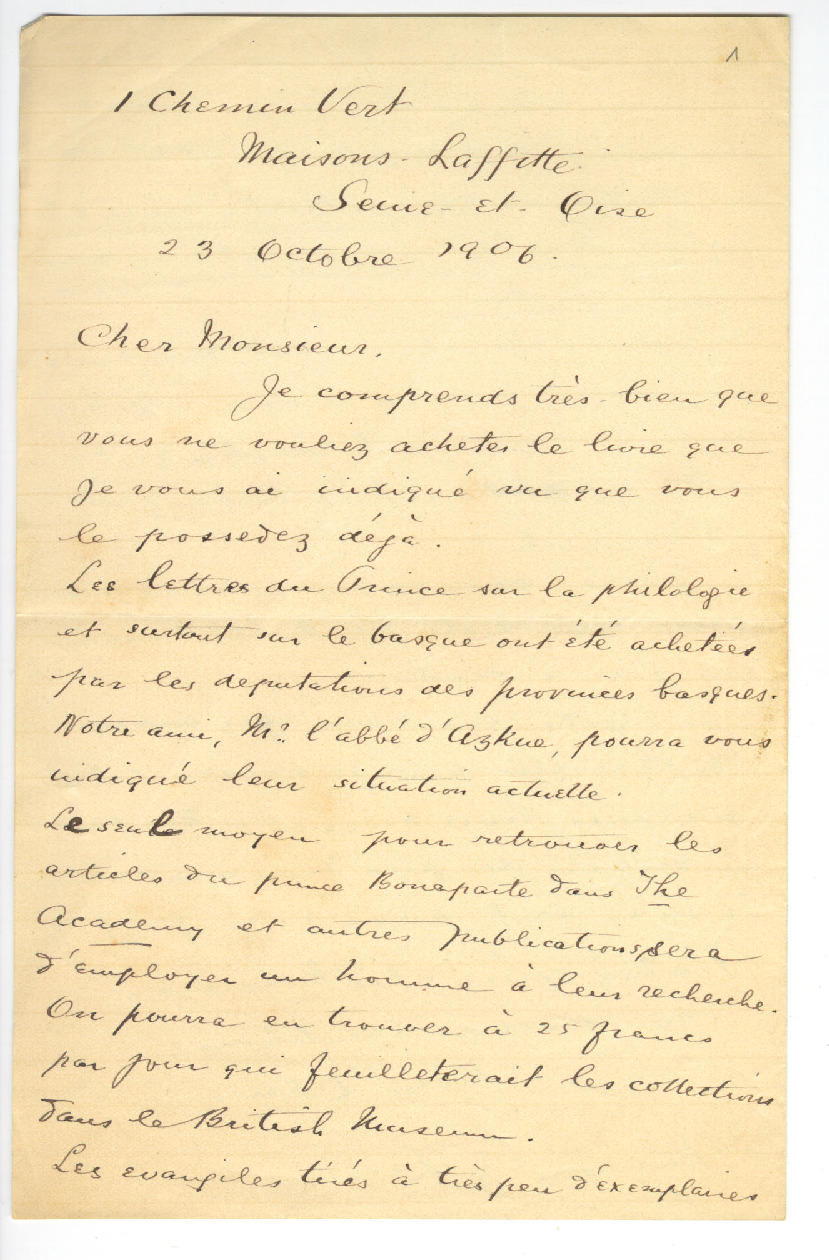 1
1 Chemin Vert
Maisons-Laffitte
Seine-et-Oise
23 Octobre 1906.
Cher Monsieur,
Je comprends très-bien que
vous ne vouliez acheter le livre que
je vous ai indiqué vu que vous
le possedez déjà.
Les lettres du Prince sur la philologie
et surtout sur le basque ont été achetées
par les deputations des provinces basques.
Notre ami, Mr. l'abbé d'Azkue, pourra vous
indiqué leur situation actuelle.
Le seul moyen pour retrouver les
articles du prince Bonaparte dans The
Academy et autres publications sera
d'employer un homme à leur recherche.
On pourra en trouver à 25 francs
par jour qui feuilleterait les collections
dans le British Museum.
Les evangiles tirés à très peu d'exemplaires